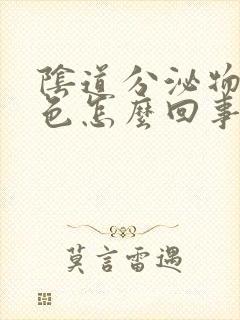 陰道分泌物
色怎麼回事
莫言雷遇